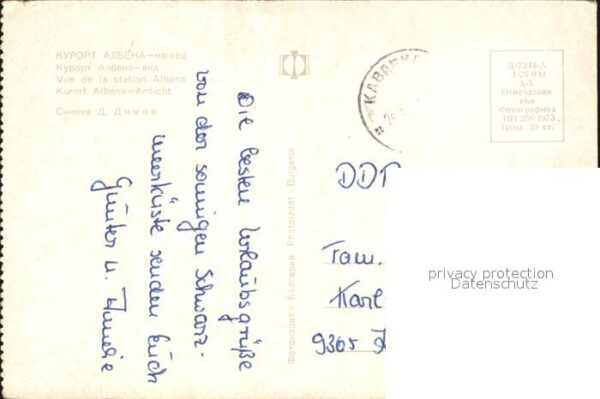 КУРОРТ АЛБЕНА—изглед
Курорт Албена—вид
Vue de la station Albéna
Kurort Albena—Ansicht
Снимка Д. Димов
Die besten Urlaubsgrüße
von der sonnigen Schwarz-
meerküste senden Euch
Günter u.
Фотоиздат - България Photoizdat - Bulgaria
КАВАРН
Д-7244-А
1-25 000
А-5
Отпечатано
във
Фотографика
ИП 256 1973
Цена 10 ст.
DDR
Fam.
Karl
9365
privacy protection
Datenschutz